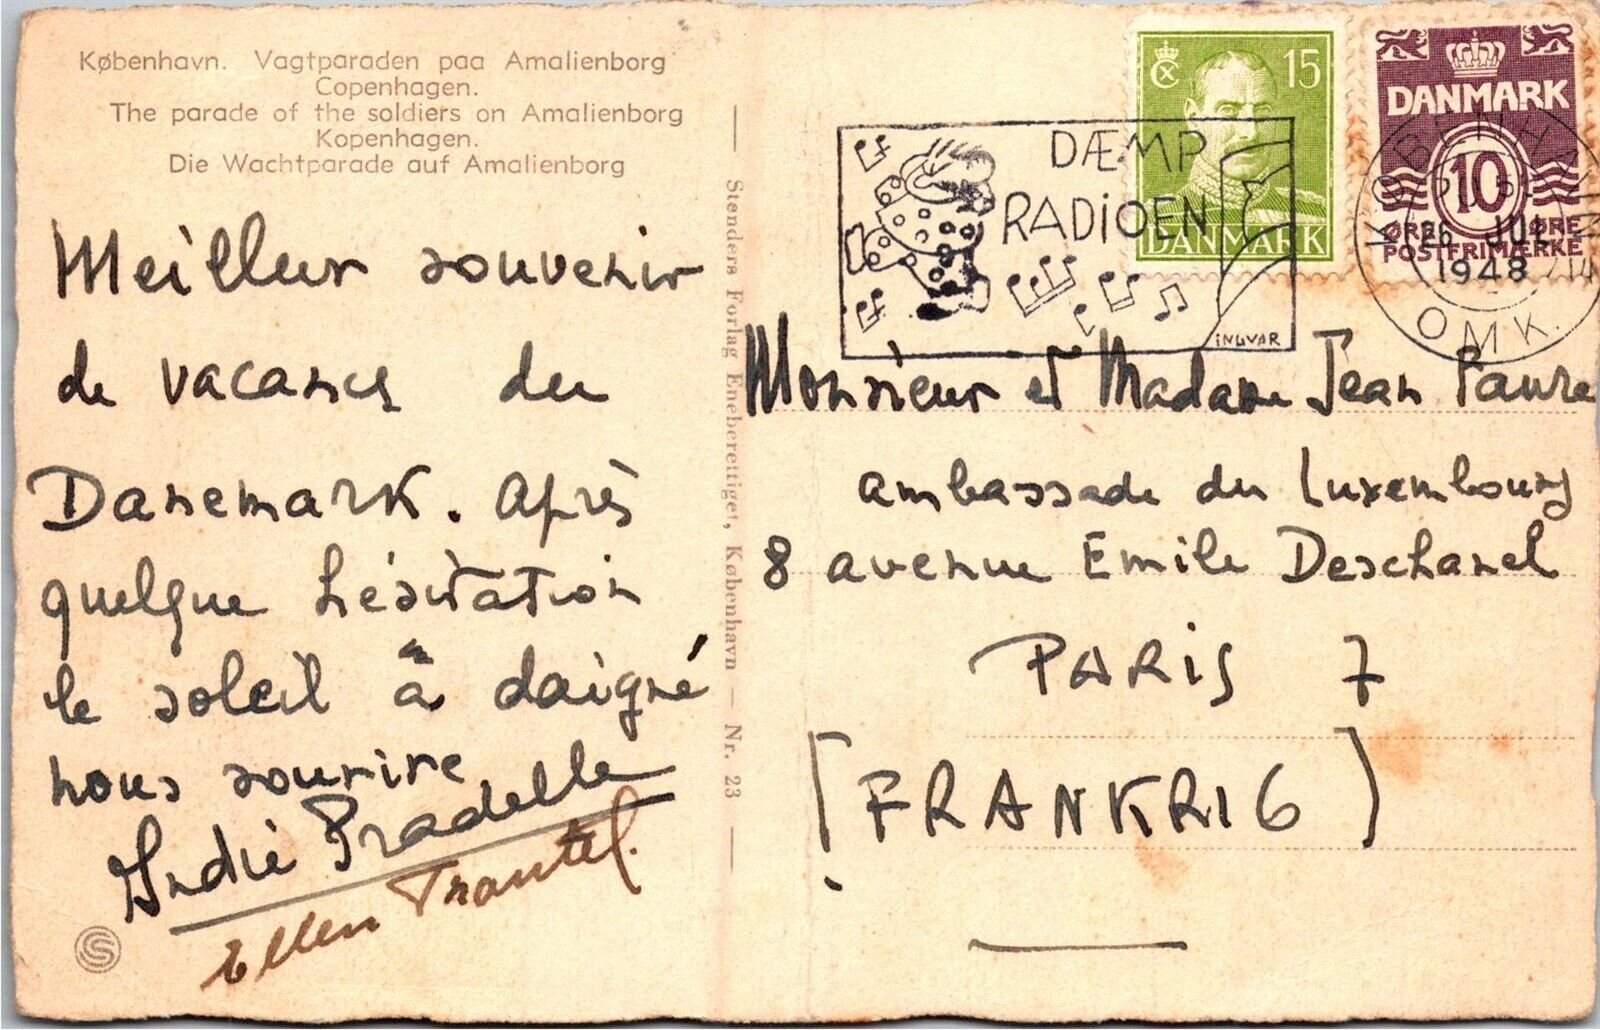 København. Vagtparaden paa Amalienborg
Copenhagen.
The parade of the soldiers on Amalienborg
Kopenhagen.
Die Wachtparade auf Amalienborg
Meilleur souvenir
de vacances du
Danemark. Après
quelque hésitation
le soleil à daigné
nous sourire
Pradelle
Ellen
Stenders Forlag Eneberettiget, København — Nr. 23
15
DANMARK
DANMARK
10
ØRE ØRE
POSTFRIMÆRKE
DÆMP
RADIOEN
INGVAR
KØBENHAVN
26 JUL
1948
OMK.
Monsieur et Madame Jean Faure
ambassade du Luxembourg
8 avenue Emile Deschanel
PARIS 7
[FRANKRIG]